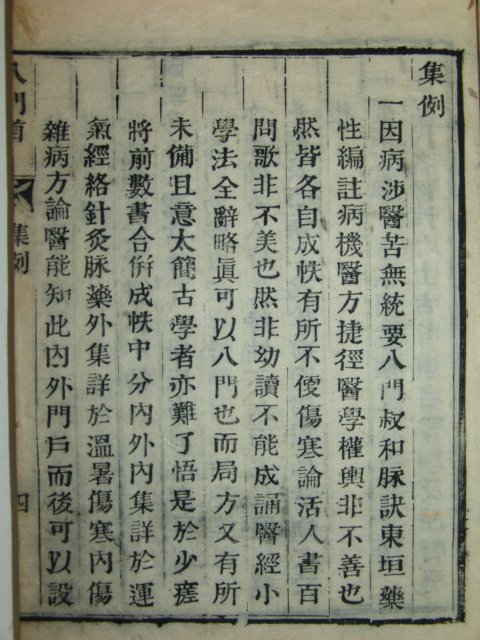 集例
一因病涉醫苦無統要八門叔和脉訣東垣藥
性編註病機醫方捷徑醫學權輿非不善也
然皆各自成帙有所不便傷寒論活人書百
問歌非不美也然非幼讀不能成誦醫經小
學法全辭略眞可以八門也而局方又有所
未備且意太簡古學者亦難了悟是於少瘥
將前數書合倂成帙中分內外內集詳於運
氣經絡針灸脉藥外集詳於溫暑傷寒內傷
雜病方論醫能知此內外門戶而後可以設
八門首
集例
四